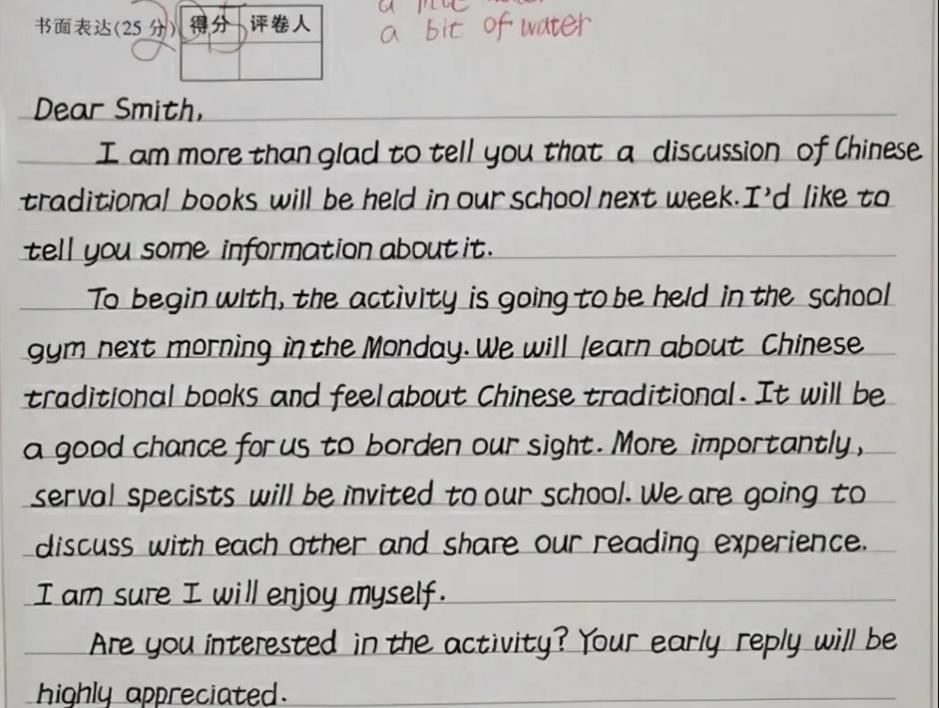 a bit of water
书面表达(25分) 得分 评卷人
Dear Smith,
I am more than glad to tell you that a discussion of Chinese
traditional books will be held in our school next week. I'd like to
tell you some information about it.
To begin with, the activity is going to be held in the school
gym next morning in the Monday. We will learn about Chinese
traditional books and feel about Chinese traditional. It will be
a good chance for us to borden our sight. More importantly,
serval specists will be invited to our school. We are going to
discuss with each other and share our reading experience.
I am sure I will enjoy myself.
Are you interested in the activity? Your early reply will be
highly appreciated.